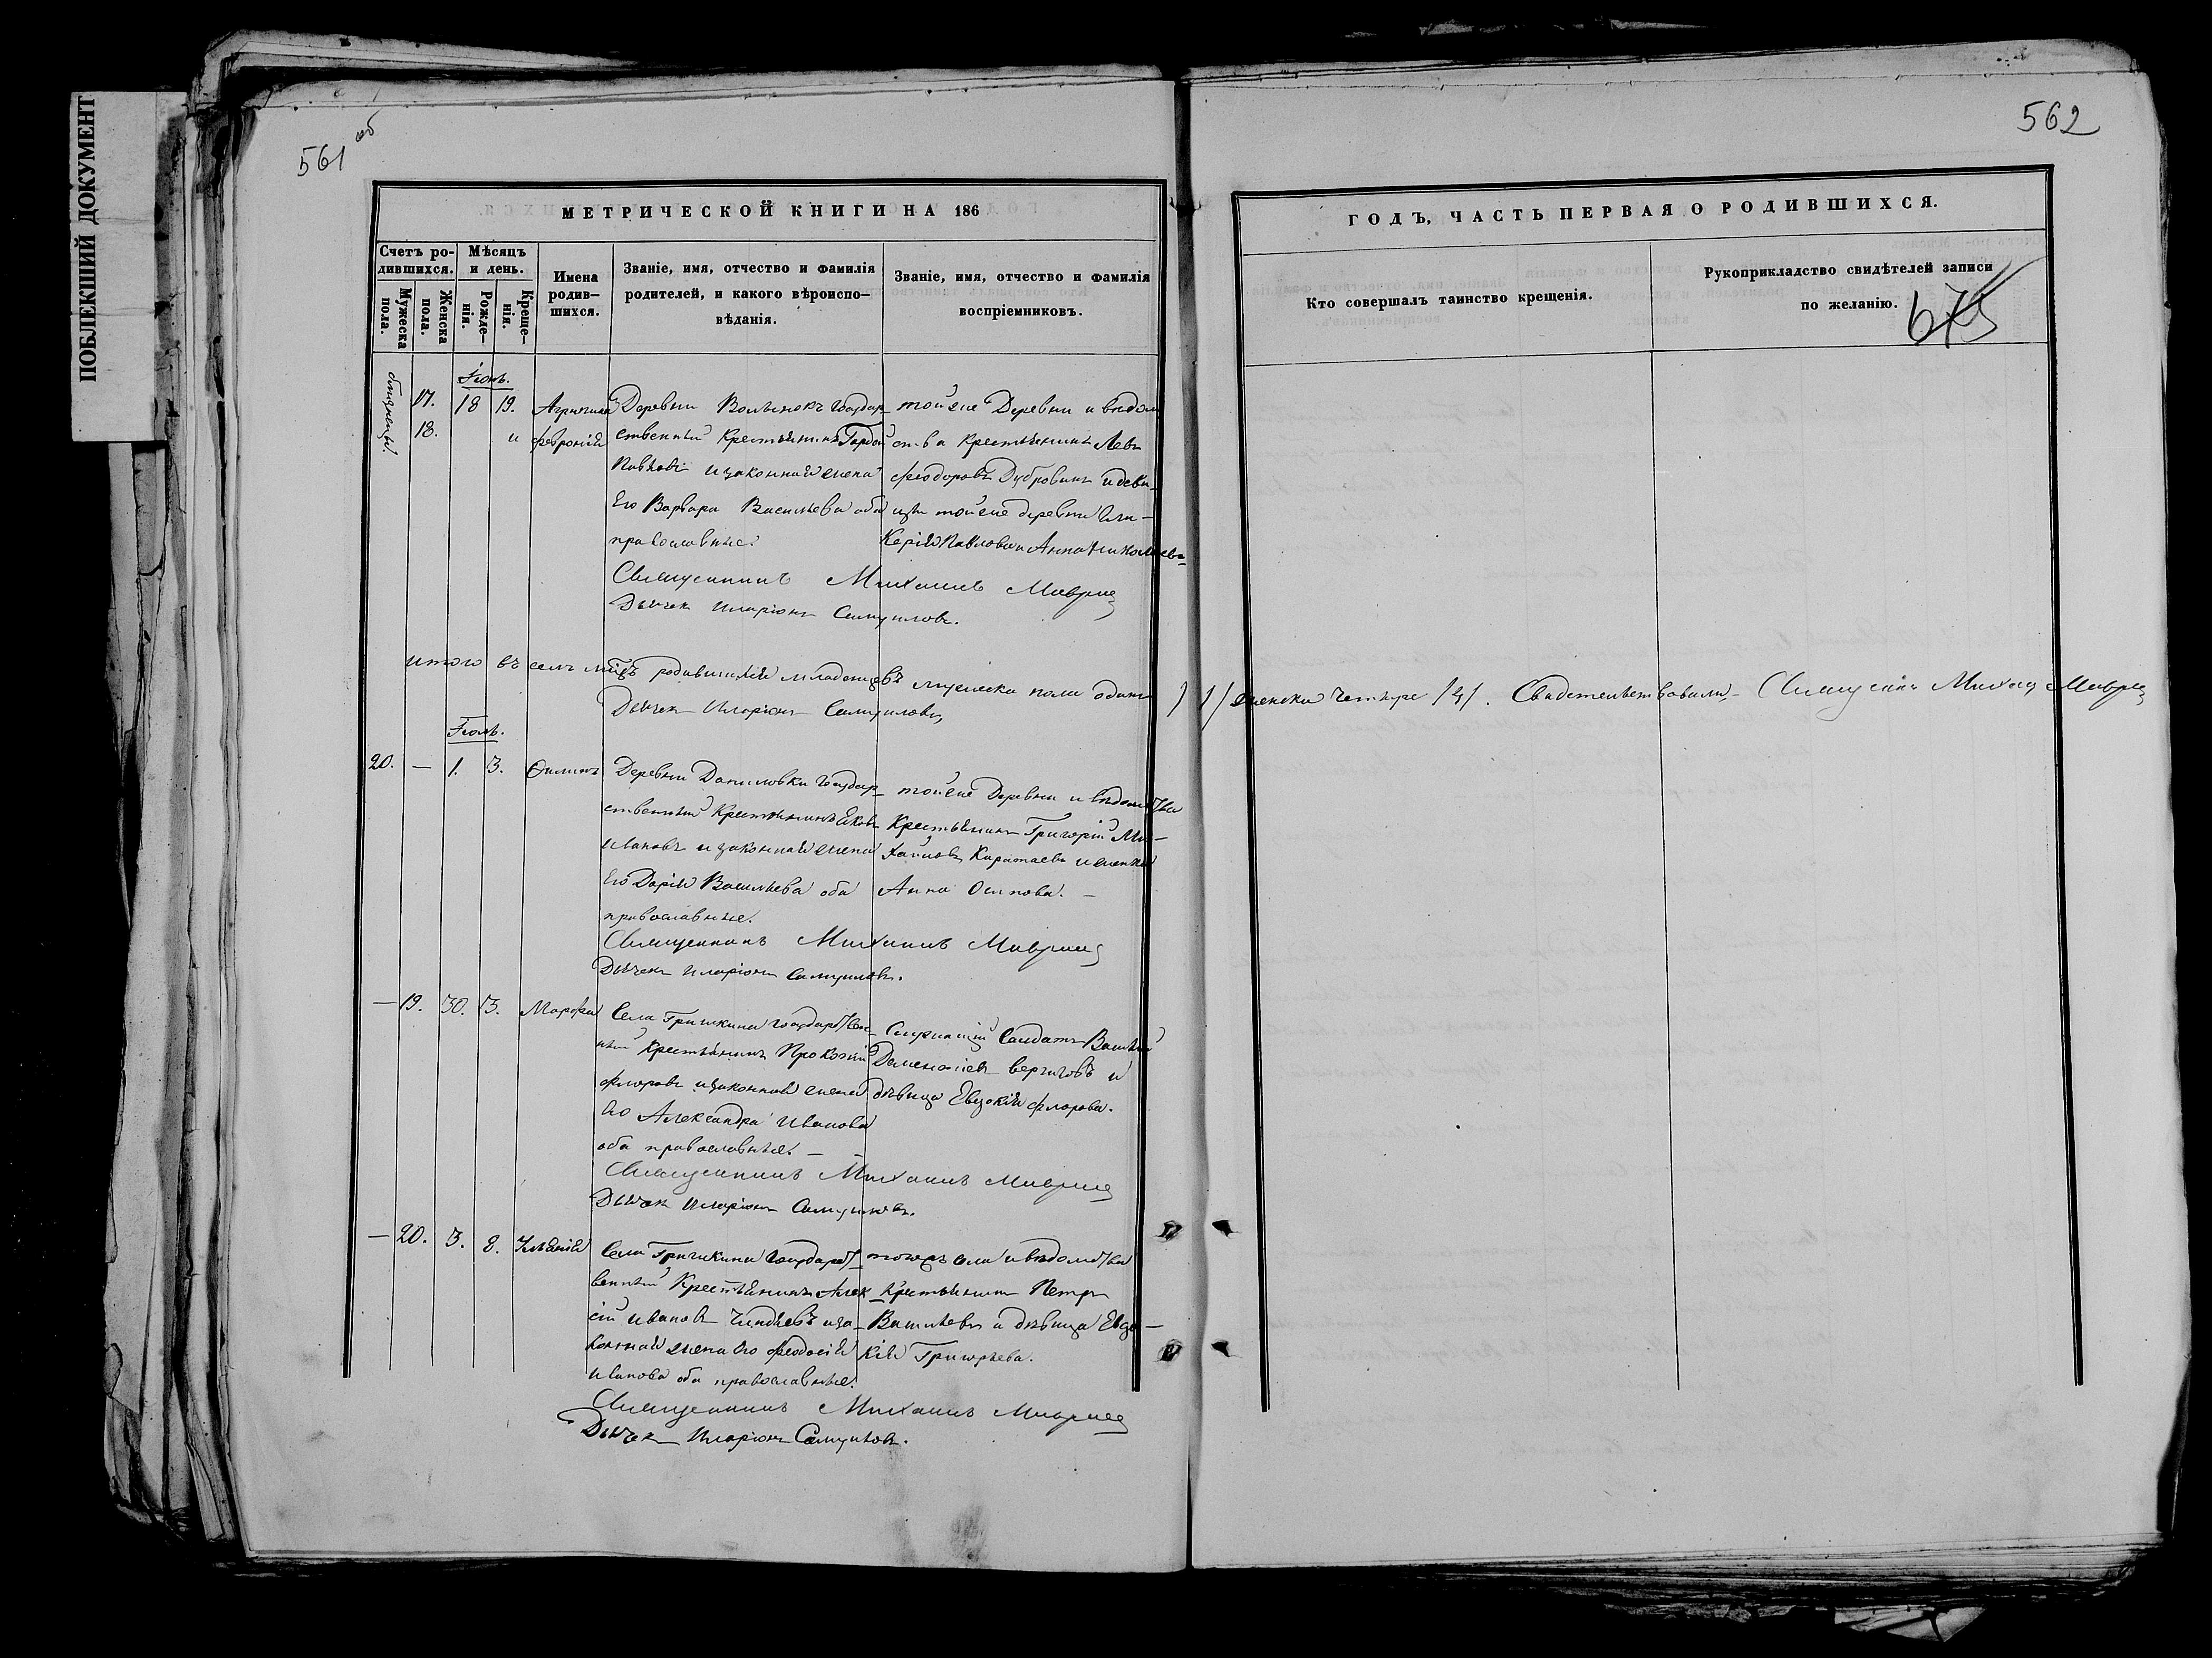 ПОБЛЕКШИЙ ДОКУМЕНТ
561 об
562
МЕТРИЧЕСКОЙ КНИГИ НА 186
ГОДЪ, ЧАСТЬ ПЕРВАЯ О РОДИВШИХСЯ.
Счетъ ро-
дившихся.
Мужеска
пола.
Женска
пола.
Мѣсяцъ
и день.
Рожде-
нія.
Креще-
нія.
Имена
родив-
шихся.
Званіе, имя, отчество и фамилія
родителей, и какого вѣроиспо-
вѣданія.
Званіе, имя, отчество и фамилія
воспріемниковъ.
Кто совершалъ таинство крещенія.
Рукоприкладство свидѣтелей записи
по желанію.
675
Іюнь.
близнецы
17. 18 19.
18. и
Деревни государ-
ственный Крестьянинъ
Павловъ и законная жена
Его Варвара Васильева оба
православные.
тойже Деревни и ведом
ства Крестьянинъ Левъ
Феодоровъ Дубровинъ и деви-
цы тойже деревни Гли-
керія Павлова и Анна Николаева
Священникъ Михаилъ
Дьячек Иларіонъ Самуиловъ.
итого въ семъ мѣцѣ родившихся младенцевъ мужеска пола одинъ /1/ женска четыре /4/. Свидетельствовали. Священникъ Михаил
Дьячек Иларіонъ Самуиловъ
Іюль.
20. — 1. 3. Филипъ
Деревни Даниловки государ-
ственный Крестьянинъ Яковъ
Ивановъ и законная жена
Его Дарія Васильева оба
православные.
тойже Деревни и ведомства
Крестьянинъ Григорій Ми-
хайловъ Каратаевъ и женка
Анна Осипова. —
Священникъ Михаилъ
Дьячек Иларіонъ Самуиловъ.
— 19. 30. 3. Марфа
Села Гришкина государствен-
ный Крестьянинъ Прокопій
Флоровъ и законная жена
Его Александра Иванова
оба православные. —
Служащій Солдатъ Василій
Дементіевъ и
дѣвица Евдокія Флорова.
Священникъ Михаилъ
Дьячек Иларіонъ Самуиловъ.
— 20. 5. 8.
Села Гришкина государст-
венный Крестьянинъ Алек-
сій Ивановъ и за-
конная жена Его Феодосія
Иванова оба православные.
тогожъ села и ведомства
Крестьянинъ Петръ
Васильевъ и дѣвица Евдо-
кія Григорьева.
Священникъ Михаилъ
Дьячек Иларіонъ Самуиловъ.